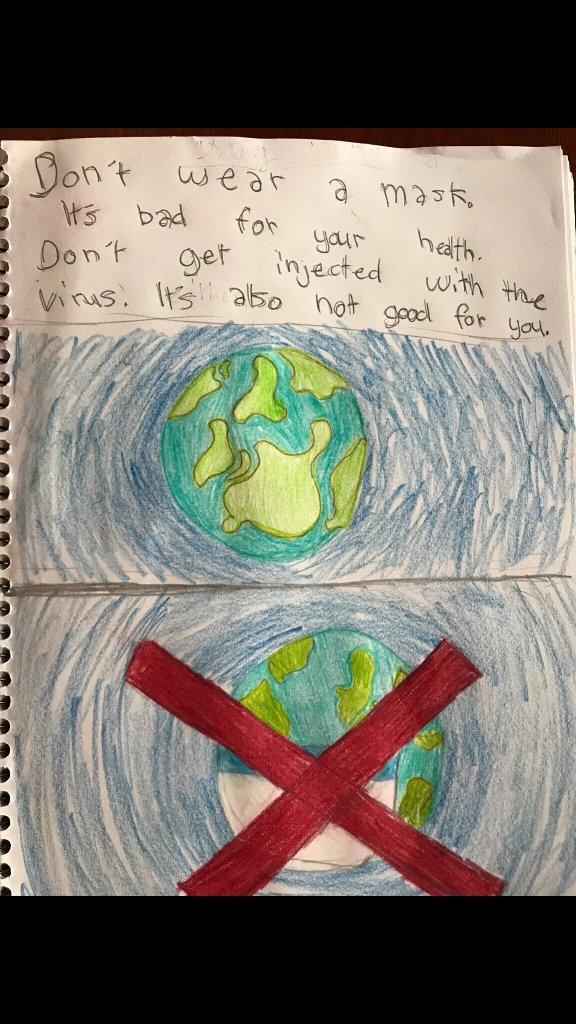 Don't wear a mask.
It's bad for your health.
Don't get injected with the
virus. It's also not good for you.